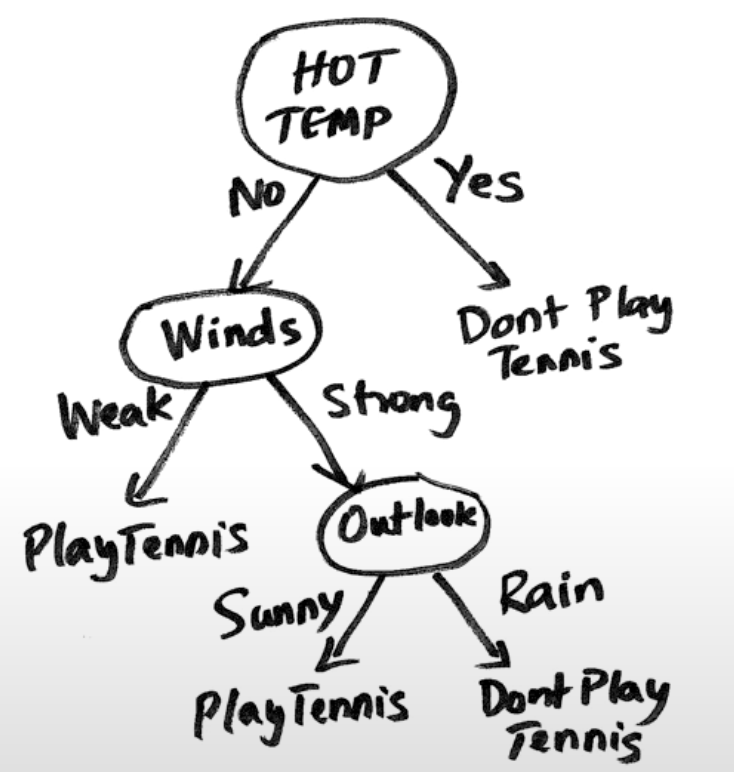 HOT
TEMP
No
Yes
Winds
Dont Play
Tennis
Weak
Strong
PlayTennis
Outlook
Sunny
Rain
PlayTennis
Dont Play
Tennis